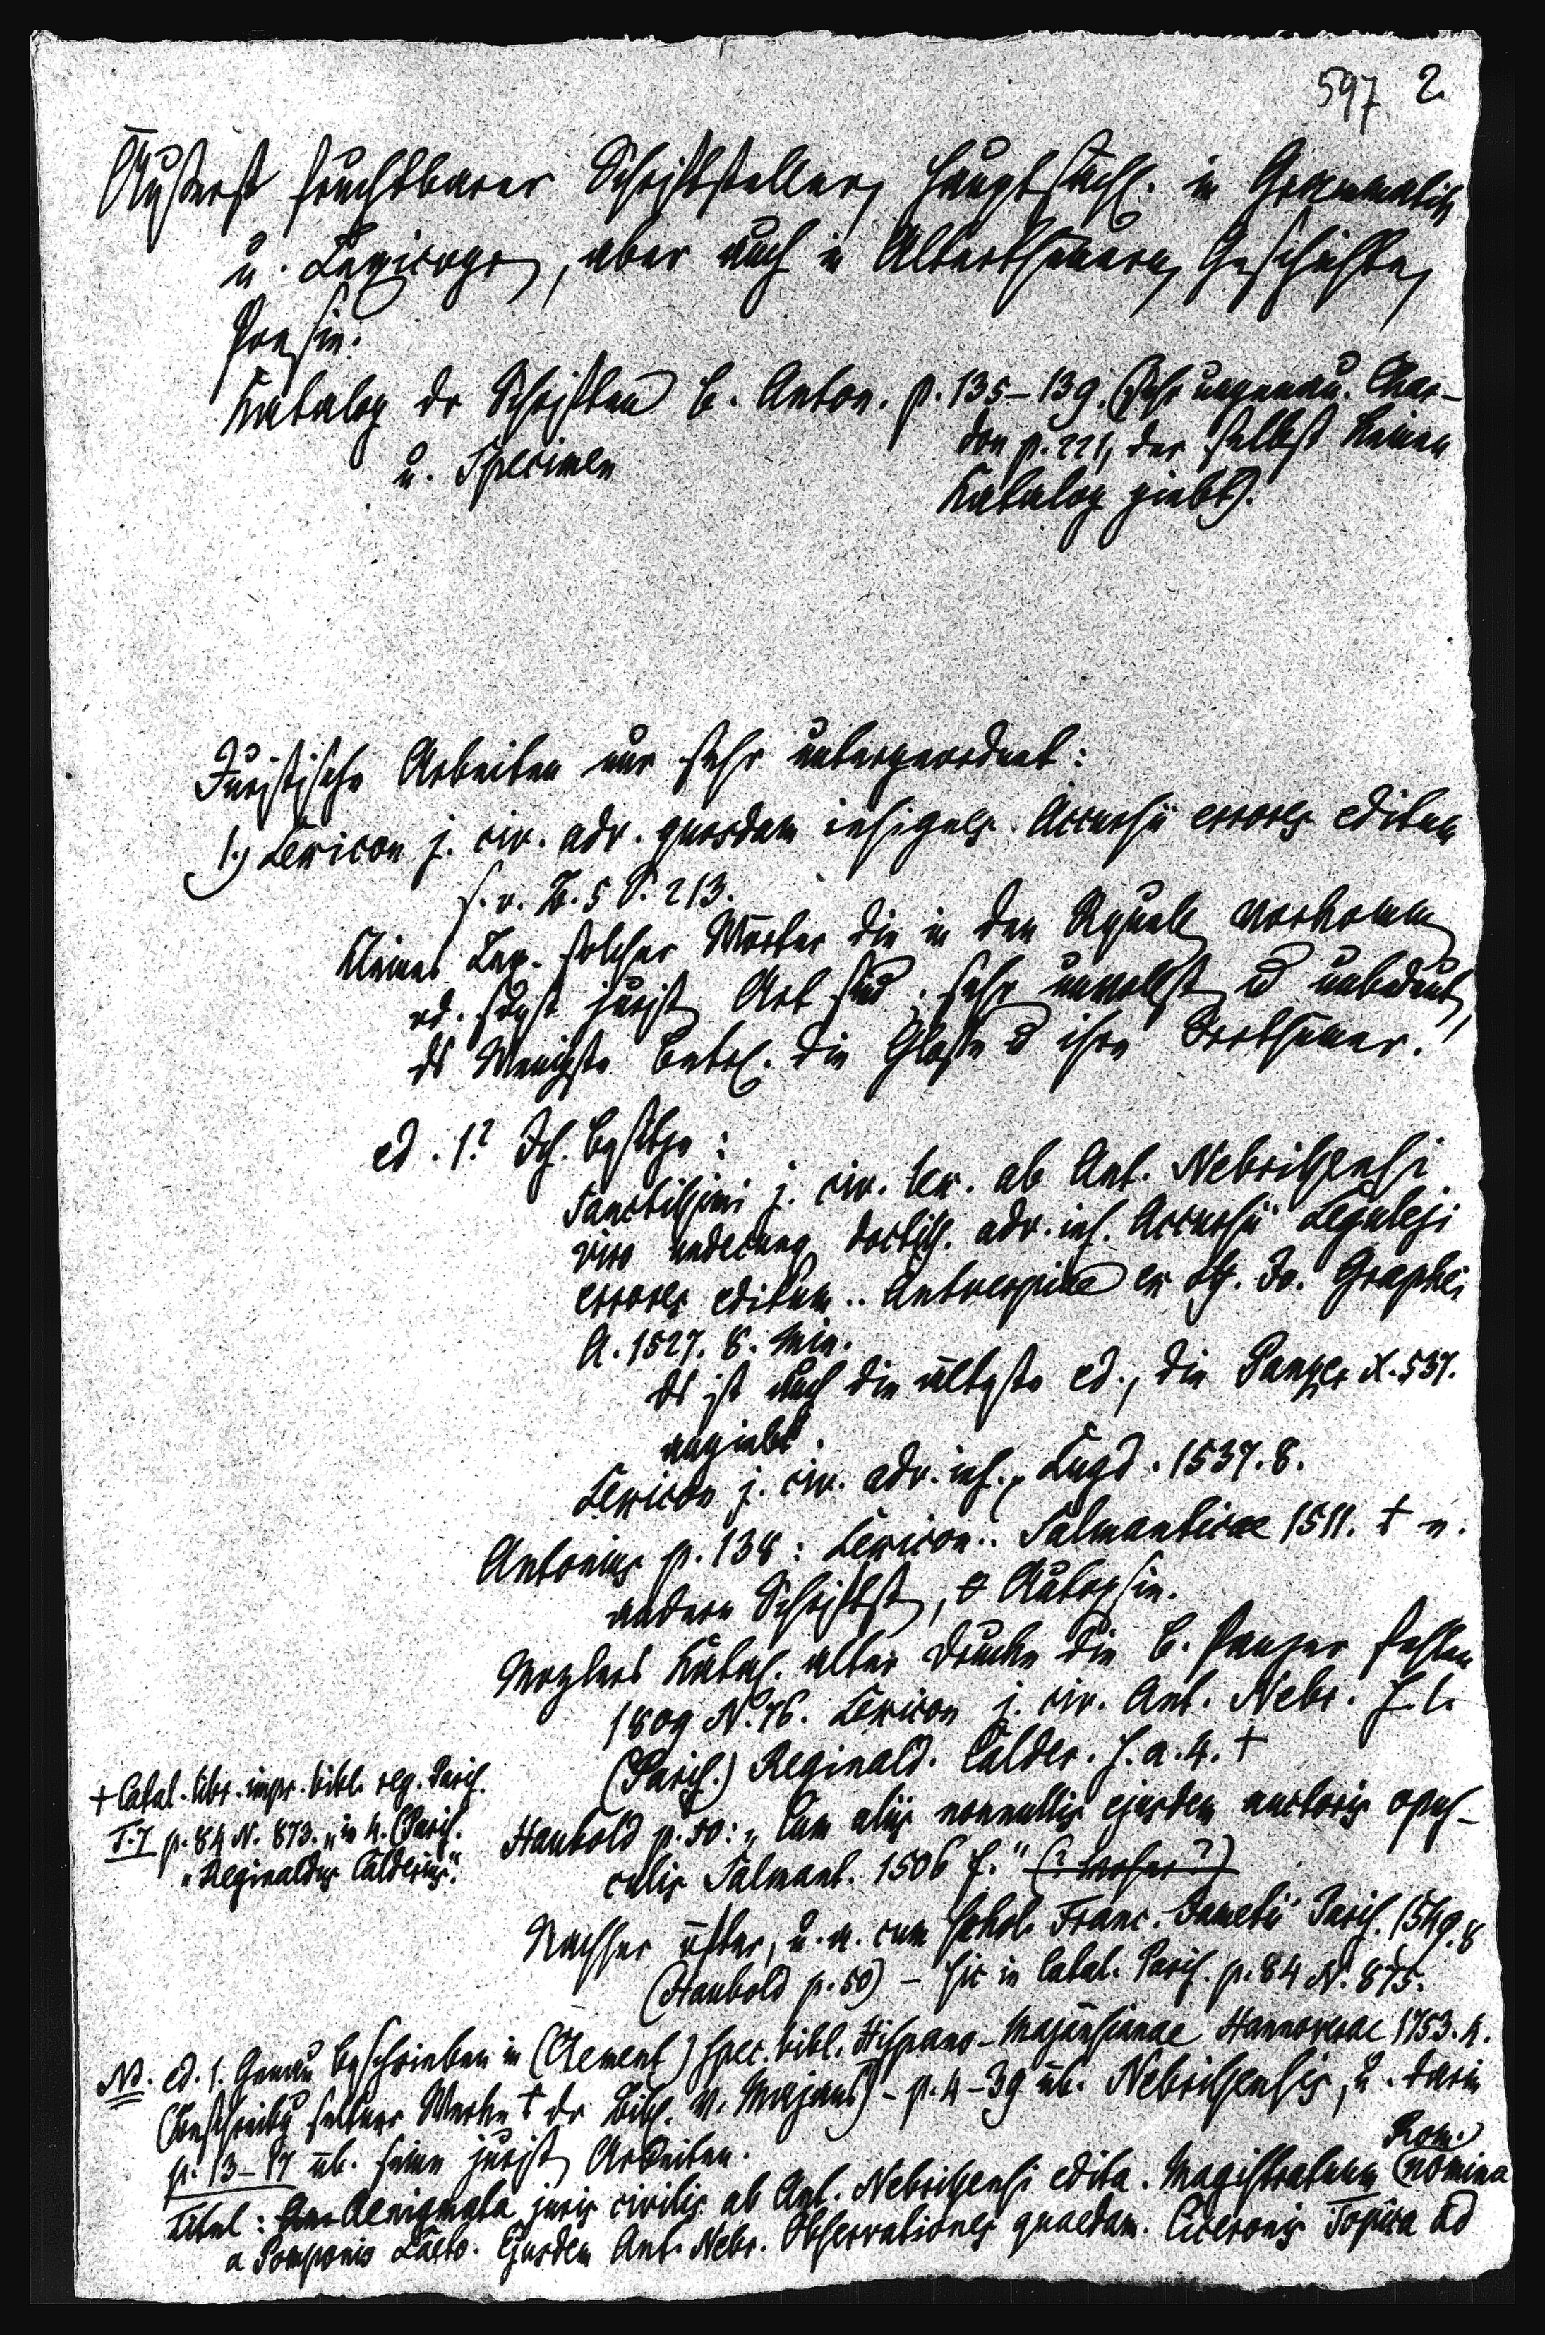 597 2
Äußerst fruchtbarer Schriftsteller, hauptsächl. in Grammatik
u. Lexicogr., aber auch in Alterthümern, Geschichte,
Poesie.
Katalog der Schriften b. Anton. p. 135–139. (Sehr ungenau.
u. Specimen
p. 221, der selbst keinen
Katalog giebt).
Juristische Arbeiten nur sehr untergeordnet:
1.) Lexicon j. civ. adv. quosdam insignes Accursii errores editum
s. v. B. 5 S. 213.
Kleines Lex. solcher Wörter die in den Rquell. vorkommen
od. sonst jurist. Art sind; sehr unvollst. u unbedeut.,
ds Wenigste betr. die Glosse u ihre Irrthümer.
ed. 1.? Ich besitze:
Sanctissimi j. civ. lex. ab Ant. Nebrissensi
viro undecunq. doctiss. adv. ins. Accursii Leguleji
errores editum .. Antverpiae ex Jo. Graphei
A. 1527. 8. min.
ds ist auch die älteste ed., die Panzer X. 537.
angiebt.
Lexicon j. civ. adv. ins., Lugd. 1537. 8.
Antonius p. 138: Lexicon .. Salmanticae 1511. + u.
andern Schriftst., o Autopsie.
Katal. alter Drucke die b. Panzer fehlen
1809 N. 76. Lexicon j. civ. Ant. Nebr. s. l.
(Paris.) Reginald. Calder. s. a. 4. +
+ Catal. libr. impr. bibl. reg. Paris.
T. I p. 84 N. 873. „in 4. (Paris.
„Reginaldus Calderius“.
Haubold p. 50: „Cum aliis nonnullis ejusdem auctoris opus-
culis Salmant. 1506 f.“ (? woher?)
Nachher öfter, u. a. cum schol. Franc. Jametii Paris. 1549. 8
(Haubold p. 50) – sic in Catal. Paris. p. 84 N. 875.
NB. ed. 1. Genau beschrieben in (Clement) spec. bibl. Hispano-Majansianae Hannoverae 1753. 4.
(Beschreibg seltner Werke + der Bibl. v. Majans) – p. 4–39 üb. Nebrissensis, u. darin
p. 13–17 üb. seine jurist. Arbeiten.
Titel: Aenigmata juris civilis ab Ant. Nebrissensi edita. Magistratuum Rom. nomina
a Pomponio Laeto. Ejusdem Ant. Nebr. Observationes quaedam. Ciceronis Topica ad